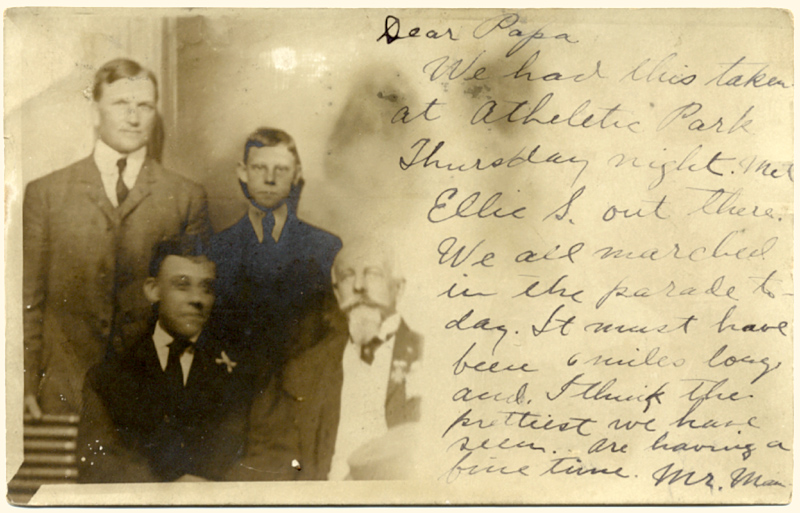 Dear Papa
We had this taken
at Atheletic Park
Thursday night. Met
Ellie S. out there.
We all marched
in the parade to-
day. It must have
been 6 miles long
and. I think the
prettiest we have
seen. are having a
fine time. Mr.